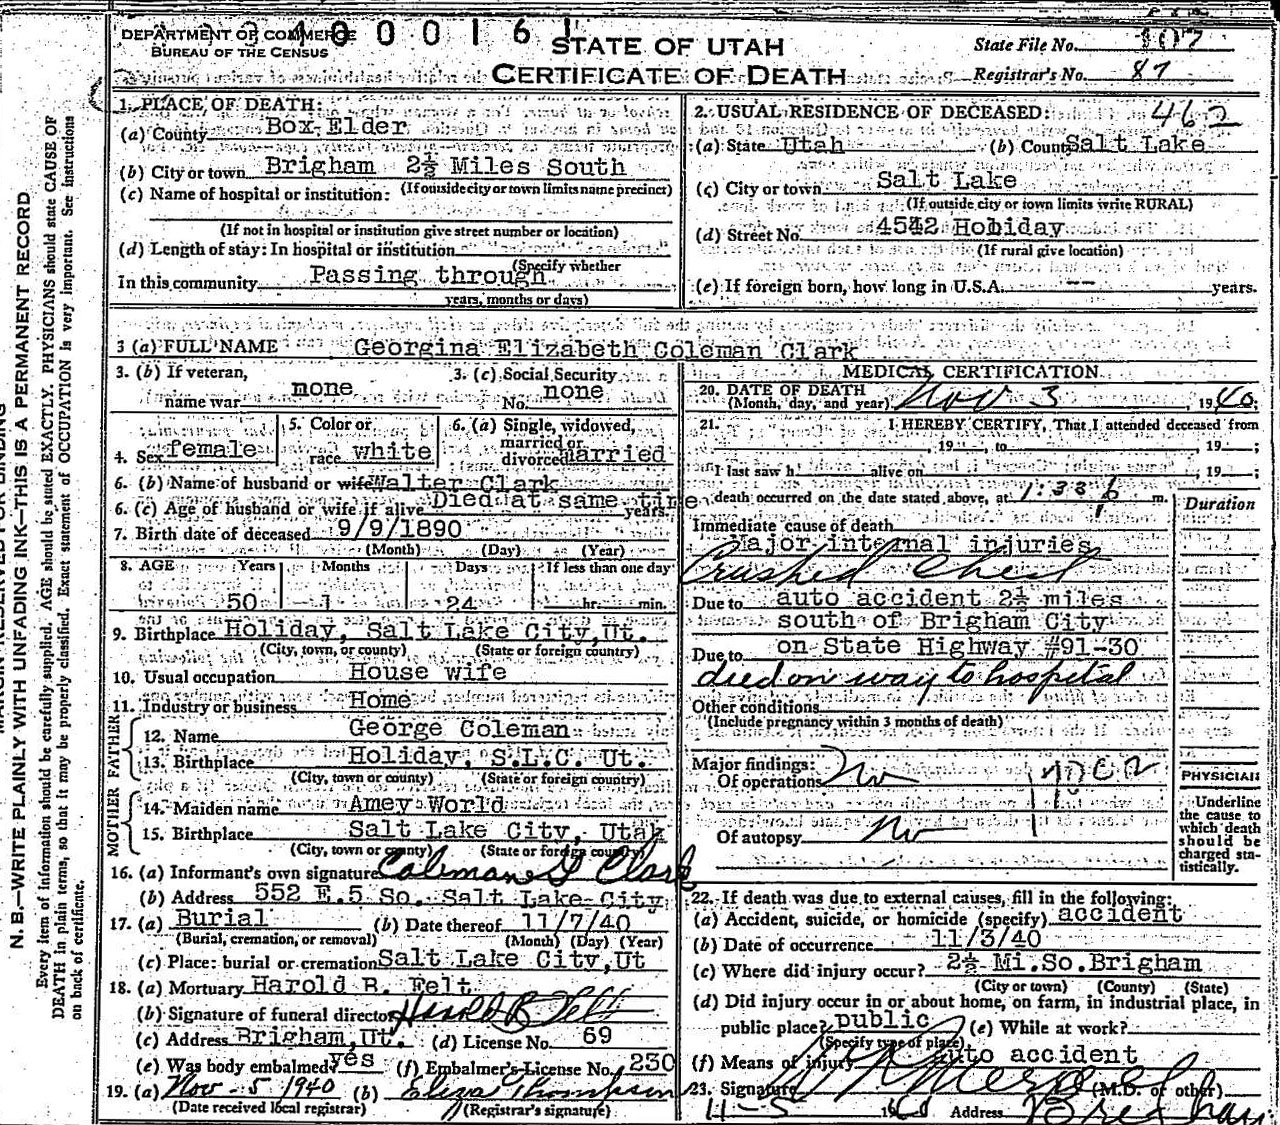 DEPARTMENT OF COMMERCE
BUREAU OF THE CENSUS
STATE OF UTAH
CERTIFICATE OF DEATH
State File No. 107
Registrar's No. 87
1. PLACE OF DEATH:
(a) County Box Elder
(b) City or town Brigham 2½ Miles South
(If outside city or town limits name precinct)
(c) Name of hospital or institution:
(If not in hospital or institution give street number or location)
(d) Length of stay: In hospital or institution
(Specify whether
In this community Passing through
years, months or days)
2. USUAL RESIDENCE OF DECEASED: 462
(a) State Utah (b) County Salt Lake
(c) City or town Salt Lake
(If outside city or town limits write RURAL)
(d) Street No. 4542 Holiday
(If rural give location)
(e) If foreign born, how long in U.S.A. -- years.
3 (a) FULL NAME Georgina Elizabeth Coleman Clark
3. (b) If veteran, name war none
3. (c) Social Security No. none
4. Sex female
5. Color or race white
6. (a) Single, widowed, married or divorced married
6. (b) Name of husband or wife Walter Clark
6. (c) Age of husband or wife if alive Died at same time years.
7. Birth date of deceased 9/9/1890
(Month) (Day) (Year)
8. AGE Years Months Days If less than one day
50 1 24 hr. min.
9. Birthplace Holiday, Salt Lake City, Ut.
(City, town, or county) (State or foreign country)
10. Usual occupation House wife
11. Industry or business Home
FATHER
12. Name George Coleman
13. Birthplace Holiday, S.L.C. Ut.
(City, town or county) (State or foreign country)
MOTHER
14. Maiden name Amey World
15. Birthplace Salt Lake City, Utah
(City, town or county) (State or foreign country)
16. (a) Informant's own signature Coleman G Clark
(b) Address 552 E.5 So. Salt Lake City
17. (a) Burial (b) Date thereof 11/7/40
(Burial, cremation, or removal) (Month) (Day) (Year)
(c) Place: burial or cremation Salt Lake City, Ut
18. (a) Mortuary Harold B. Felt
(b) Signature of funeral director Harold B Felt
(c) Address Brigham, Ut. (d) License No. 69
(e) Was body embalmed? yes (f) Embalmer's License No. 230
19. (a) Nov - 5 1940 (b) Eliza Thompson
(Date received local registrar) (Registrar's signature)
MEDICAL CERTIFICATION
20. DATE OF DEATH
(Month, day, and year) Nov 3, 1940;
21. I HEREBY CERTIFY, That I attended deceased from
, 19 , to , 19 ;
I last saw h alive on , 19 ;
death occurred on the date stated above, at 1:33 m.
Duration
Immediate cause of death
Major internal injuries
Crushed Chest
Due to auto accident 2½ miles
south of Brigham City
Due to on State Highway #91-30
died on way to hospital
Other conditions
(Include pregnancy within 3 months of death)
Major findings:
Of operations No
Of autopsy No
PHYSICIAN
Underline the cause to which death should be charged statistically.
22. If death was due to external causes, fill in the following:
(a) Accident, suicide, or homicide (specify) accident
(b) Date of occurrence 11/3/40
(c) Where did injury occur? 2½ Mi.So.Brigham
(City or town) (County) (State)
(d) Did injury occur in or about home, on farm, in industrial place, in
public place? public (e) While at work?
(Specify type of place)
(f) Means of injury auto accident
23. Signature (M.D. or other)
11-5 1940 Address Brigham
N. B.—WRITE PLAINLY WITH UNFADING INK—THIS IS A PERMANENT RECORD
Every item of information should be carefully supplied. AGE should be stated EXACTLY. PHYSICIANS should state CAUSE OF
DEATH in plain terms, so that it may be properly classified. Exact statement of OCCUPATION is very important. See instructions
on back of certificate.